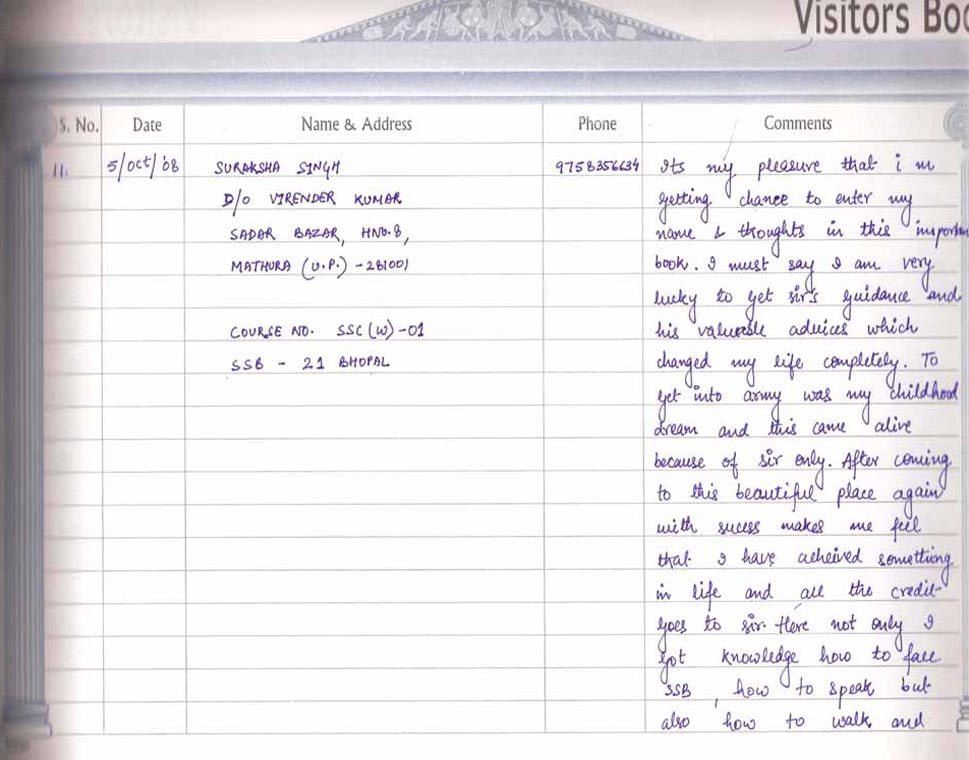 Visitors Boo
S. No. Date Name & Address Phone Comments
11. 5/Oct/'08 SURAKSHA SINGH 9758356634 Its my pleasure that i m
D/o VIRENDER KUMAR getting chance to enter my
SADAR BAZAR, HNO.8, name & thoughts in this importan
MATHURA (U.P.) - 281001 book. I must say I am very
lucky to get sir's guidance and
COURSE NO. SSC (W) - 01 his valuable advices which
SSB - 21 BHOPAL changed my life completely. To
get into army was my childhood
dream and this came alive
because of sir only. After coming
to this beautiful place again
with sucess makes me feel
that I have acheived something
in life and all the credit
goes to sir. Here not only I
got knowledge how to face
SSB, how to speak but
also how to walk and